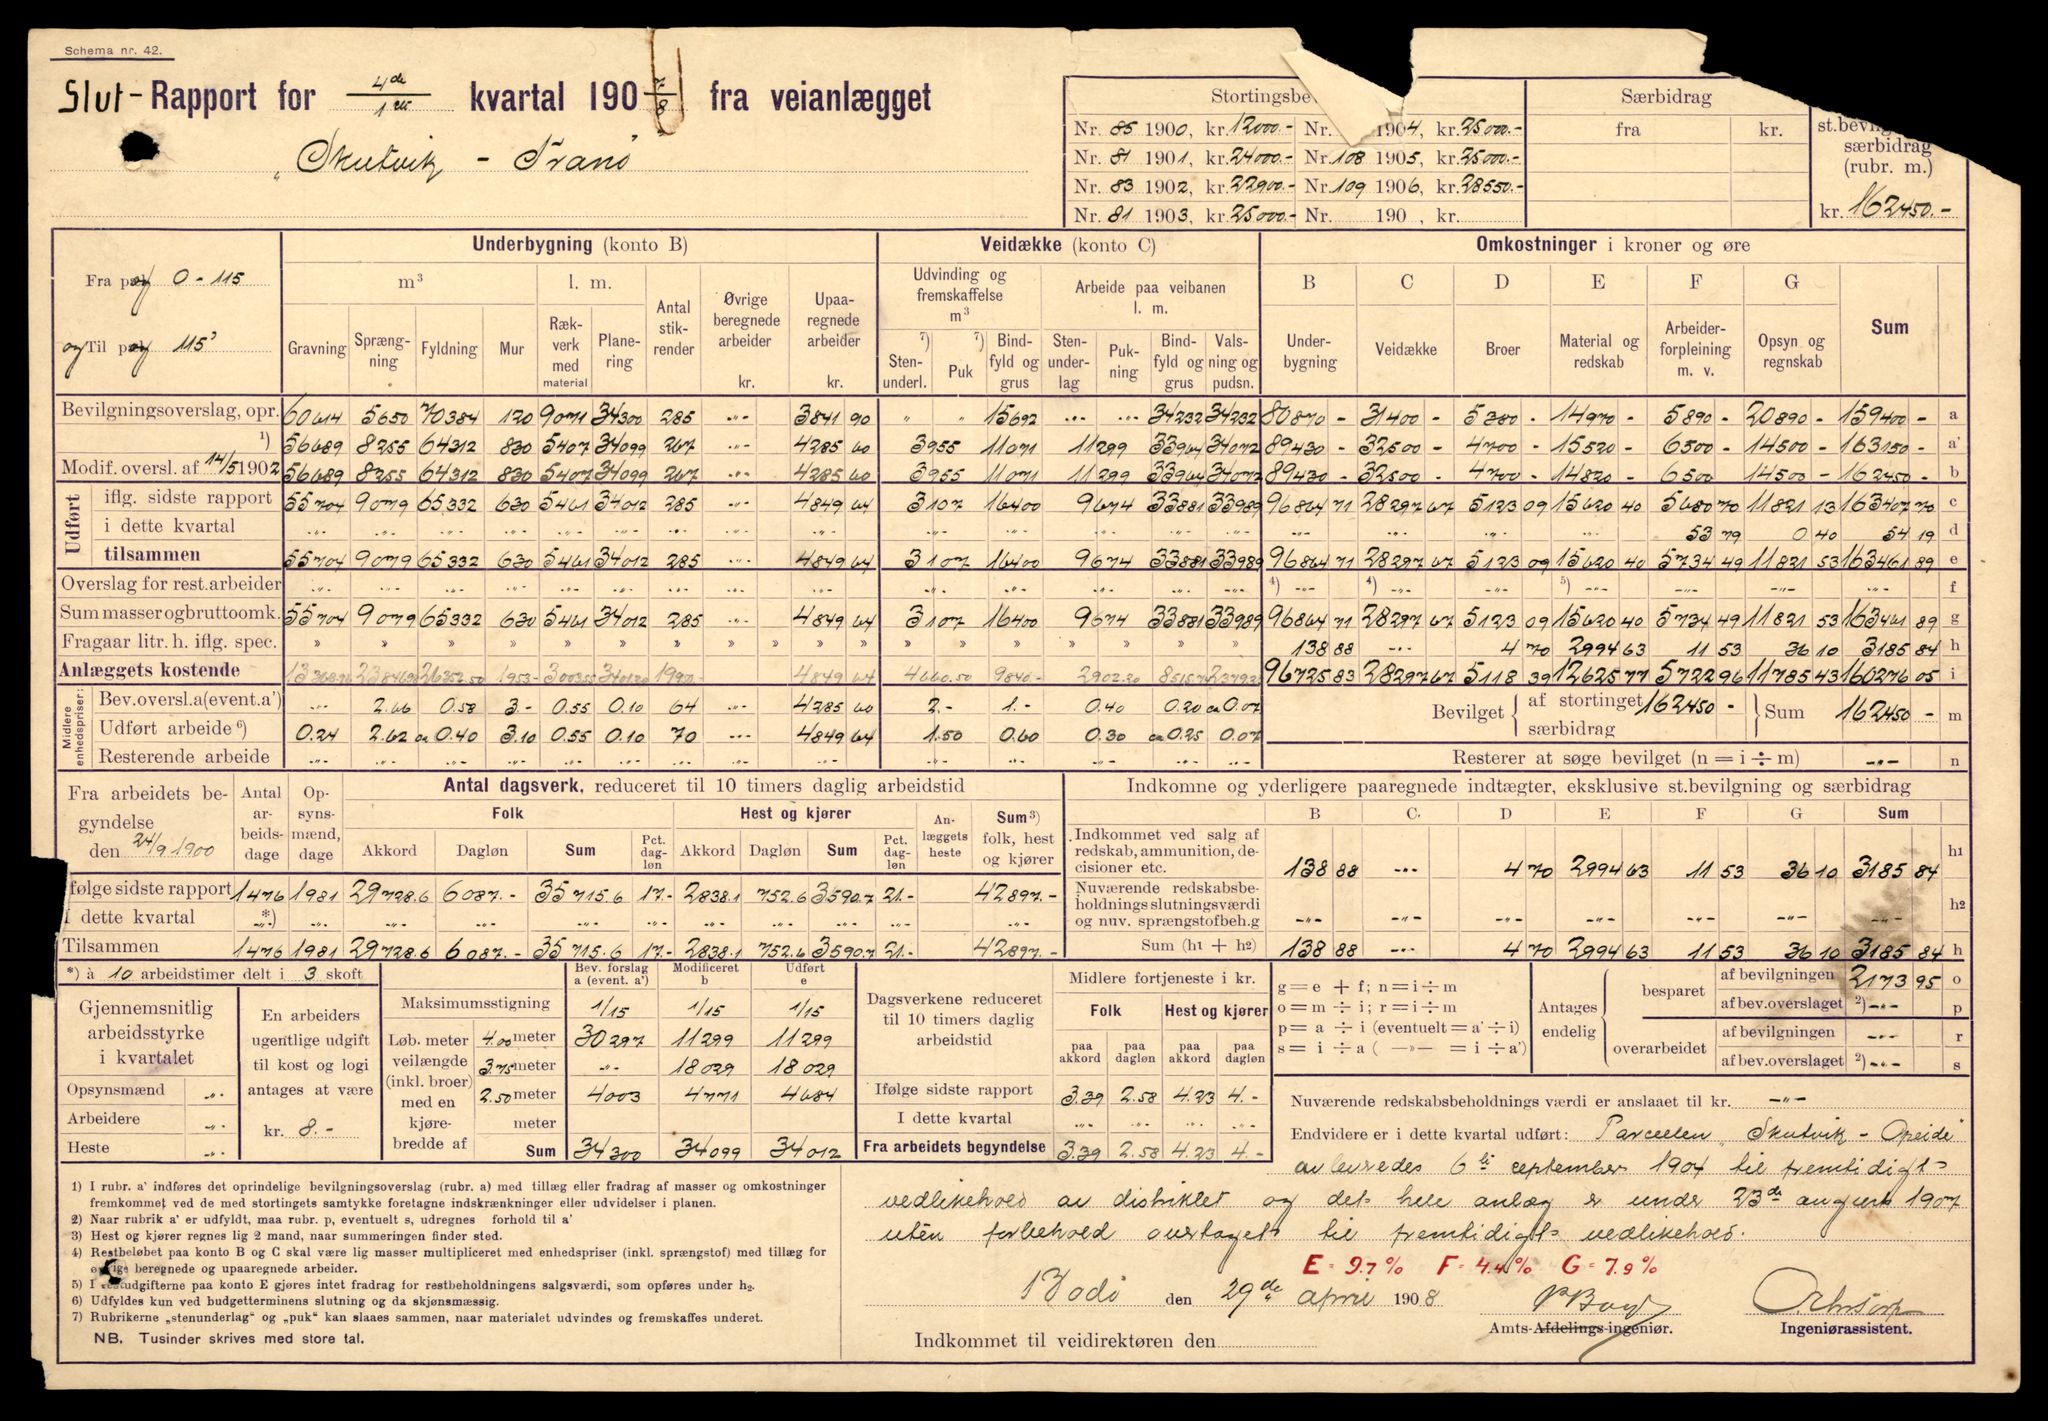 Schema nr. 42.
Slut-Rapport for 4de/1ste kvartal 190 7/8 fra veianlægget
„Skutvik - Tranö"
Stortingsbe
Særbidrag
fra kr.
st.bevilg
særbidrag
(rubr. m.)
kr. 162450.-
Nr. 85 1900, kr. 12000.- Nr. 1904, kr. 25000.-
Nr. 81 1901, kr. 24000.- Nr. 108 1905, kr. 25000.-
Nr. 83 1902, kr. 22900.- Nr. 109 1906, kr. 28550.-
Nr. 81 1903, kr. 25000.- Nr. 190 , kr.
Fra pæl og 0 - 115
og Til pæl og 115
Underbygning (konto B) Veidække (konto C) Omkostninger i kroner og øre
m³ l. m. Antal stikrender Øvrige beregnede arbeider kr. Upaaregnede arbeider kr.
Gravning Sprængning Fyldning Mur Rækverk med material Planering
Udvinding og fremskaffelse m³ Arbeide paa veibanen l. m.
7) Stenunderl. Puk 7) Bindfyld og grus Stenunderlag Pukning Bindfyld og grus Valsning og pudsn.
B C D E F G Sum
Underbygning Veidække Broer Material og redskab Arbeiderforpleining m. v. Opsyn og regnskab
Bevilgningsoverslag, opr. 60614 5650 70384 120 9071 34300 285 -"- 3841 90 " " 15692 -"- -"- 34232 34232 80870 - 31400 - 5380 - 14970 - 5890 - 20890 - 159400 - a
1) 56689 8255 64312 830 5407 34099 267 -"- 4285 60 3955 11071 11299 33964 34072 89430 - 32500 - 4700 - 15520 - 6500 - 14500 - 163150 - a'
Modif. oversl. af 14/5 1902 56689 8255 64312 830 5407 34099 267 -"- 4285 60 3955 11071 11299 33964 34072 89430 - 32500 - 4700 - 14820 - 6500 - 14500 - 162450 - b
Udført
iflg. sidste rapport 55704 9079 65332 630 5461 34012 285 -"- 4849 64 3107 16400 9674 33881 33989 96864 71 28297 67 5123 09 15620 40 5680 70 11821 13 163407 70 c
i dette kvartal -"- -"- -"- -"- -"- -"- -"- -"- -"- -"- -"- -"- -"- -"- -"- -"- -"- -"- 53 79 0 40 54 19 d
tilsammen 55704 9079 65332 630 5461 34012 285 -"- 4849 64 3107 16400 9674 33881 33989 96864 71 28297 67 5123 09 15620 40 5734 49 11821 53 163461 89 e
Overslag for rest. arbeider -"- -"- -"- -"- -"- -"- -"- -"- -"- -"- -"- -"- -"- -"- 4) -"- 4) -"- -"- 5) -"- -"- -"- -"- f
Sum masser og bruttoomk. 55704 9079 65332 630 5461 34012 285 -"- 4849 64 3107 16400 9674 33881 33989 96864 71 28297 67 5123 09 15620 40 5734 49 11821 53 163461 89 g
Fragaar litr. h. iflg. spec. » » » » » » » » » » » » » » » » 138 88 -"- 4 70 2994 63 11 53 36 10 3185 84 h
Anlæggets kostende 23846.90 26352.50 1953.- 3003.55 3401.20 4849 64 4660.50 9840.- 2902.20 96725 83 28297 67 5118 39 12625 77 5722 96 11785 43 160276 05 i
Midlere enhedspriser:
Bev.oversl. a (event. a') -"- 2.66 0.58 3.- 0.55 0.10 64 -"- 4285 60 2.- 1.- 0.40 0.20 ca 0.07
Udført arbeide 6) 0.24 2.62 ca 0.40 3.10 0.55 0.10 70 -"- 4849 64 1.50 0.60 0.30 ca 0.25 0.07
Resterende arbeide -"- -"- -"- -"- -"- -"- -"- -"- -"- -"- -"- -"- -"- -"-
Bevilget { af stortinget 162450 - særbidrag } Sum 162450 - m
Resterer at søge bevilget (n = i ÷ m) -"- n
Fra arbeidets begyndelse den 24/9 1900
Antal arbeidsdage Opsynsmænd, dage
Antal dagsverk, reduceret til 10 timers daglig arbeidstid
Folk Hest og kjører Anlæggets heste Sum 3) folk, hest og kjørere
Akkord Dagløn Sum Pct. dagløn Akkord Dagløn Sum Pct. dagløn
følge sidste rapport 1476 1981 29728.6 6087.- 35715.6 17.- 2838.1 752.6 3590.7 21.- 42897.-
I dette kvartal *) -"- -"- -"- -"- -"- -"- -"- -"- -"- -"- -"-
Tilsammen 1476 1981 29728.6 6087.- 35715.6 17.- 2838.1 752.6 3590.7 21.- 42897.-
Indkomne og yderligere paaregnede indtægter, eksklusive st.bevilgning og særbidrag
B C. D E F G Sum
Indkommet ved salg af redskab, ammunition, decisioner etc. 138 88 -"- 4 70 2994 63 11 53 36 10 3185 84 h1
Nuværende redskabsbeholdnings slutningsværdi og nuv. sprængstofbeh.g -"- -"- -"- -"- -"- -"- -"- h2
Sum (h1 + h2) 138 88 -"- 4 70 2994 63 11 53 36 10 3185 84 h
*) à 10 arbeidstimer delt i 3 skoft
Gjennemsnitlig arbeidsstyrke i kvartalet
Opsynsmænd -"-
Arbeidere -"-
Heste -"-
En arbeiders ugentlige udgift til kost og logi antages at være
kr. 8.-
Bev. forslag a (event. a') Modificeret b Udført e
Maksimumsstigning 1/15 1/15 1/15
Løb. meter veilængde (inkl. broer) med en kjørebredde af
4.00 meter 30297 11299 11299
3.75 meter -"- 18029 18029
2.50 meter 4003 4771 4684
meter
Sum 34300 34099 34012
Dagsverkene reduceret til 10 timers daglig arbeidstid
Midlere fortjeneste i kr.
Folk Hest og kjører
paa akkord paa dagløn paa akkord paa dagløn
Ifølge sidste rapport 3.39 2.58 4.23 4.-
I dette kvartal -"- -"- -"- -"-
Fra arbeidets begyndelse 3.39 2.58 4.23 4.-
g = e + f; n = i ÷ m
o = m ÷ i; r = i ÷ m
p = a ÷ i (eventuelt = a' ÷ i)
s = i ÷ a ( —»— = i ÷ a')
Antages endelig
besparet af bevilgningen 2173 95 o
af bev.overslaget 2) -"- p
overarbeidet af bevilgningen -"- r
af bev.overslaget 2) -"- s
Nuværende redskabsbeholdnings værdi er anslaaet til kr. -"-
Endvidere er i dette kvartal udført: Parcellen „Skutvik - Opeide"
avleveredes 6te september 1904 til fremtidigt
vedlikehold av distriktet og det hele anlæg er under 23de august 1907
uten forbehold overtaget til fremtidigt vedlikehold.
E = 9.7% F = 4.4% G = 7.9%
Bodö den 29de april 1908
Amts-Afdelings-ingeniør. Ingeniørassistent.
Indkommet til veidirektøren den
1) I rubr. a' indføres det oprindelige bevilgningsoverslag (rubr. a) med tillæg eller fradrag af masser og omkostninger
fremkommet ved de med stortingets samtykke foretagne indskrænkninger eller udvidelser i planen.
2) Naar rubrik a' er udfyldt, maa rubr. p, eventuelt s, udregnes forhold til a'
3) Hest og kjører regnes lig 2 mand, naar summeringen finder sted.
4) Restbeløbet paa konto B og C skal være lig masser multipliceret med enhedspriser (inkl. sprængstof) med tillæg for
øvrige beregnede og upaaregnede arbeider.
5) I restudgifterne paa konto E gjøres intet fradrag for restbeholdningens salgsværdi, som opføres under h2.
6) Udfyldes kun ved budgetterminens slutning og da skjønsmæssig.
7) Rubrikerne „stenunderlag" og „puk" kan slaaes sammen, naar materialet udvindes og fremskaffes underet.
NB. Tusinder skrives med store tal.